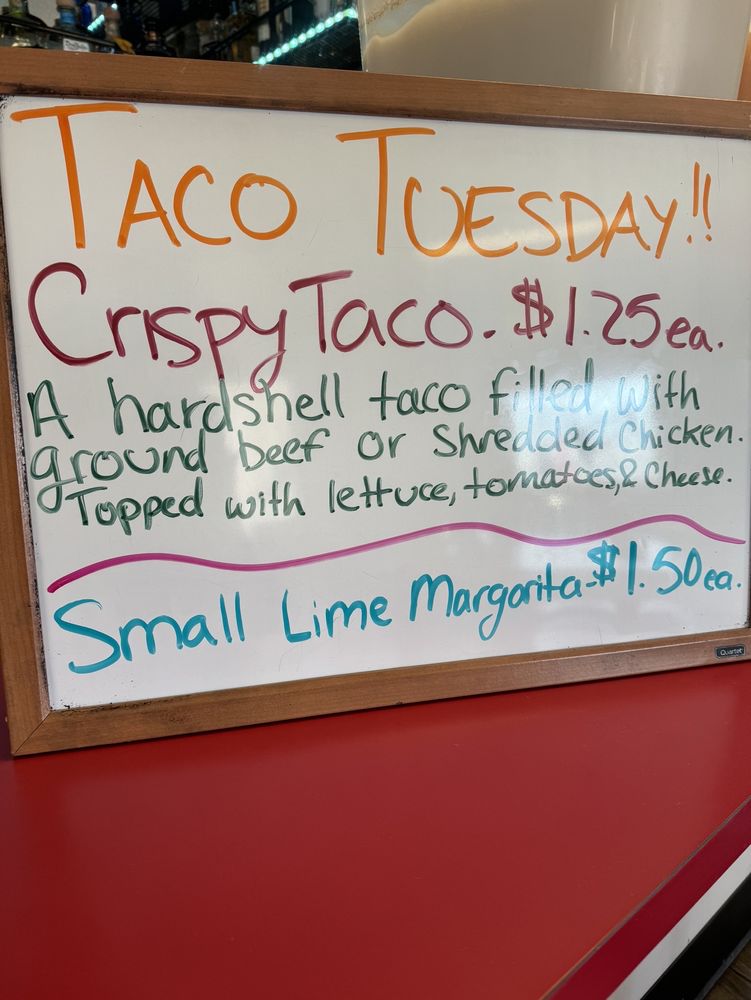 TACO TUESDAY!!
Crispy Taco. $1.25 ea.
A hardshell taco filled with
ground beef or Shredded Chicken.
Topped with lettuce, tomatoes, & Cheese.
Small Lime Margarita-$1.50 ea.
Quartet